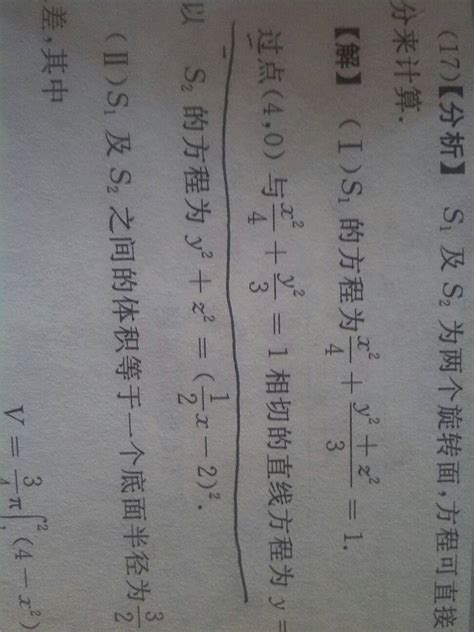 (17)【分析】 S₁ 及 S₂ 为两个旋转面,方程可直接
分来计算.
【解】 (Ⅰ)S₁ 的方程为 x²/4 + (y²+z²)/3 = 1.
过点(4,0)与 x²/4 + y²/3 = 1 相切的直线方程为 y =
以 S₂ 的方程为 y² + z² = (1/2 x − 2)².
(Ⅱ)S₁ 及 S₂ 之间的体积等于一个底面半径为 3/2
差,其中
V = 3/4 π∫₁² (4 − x²)